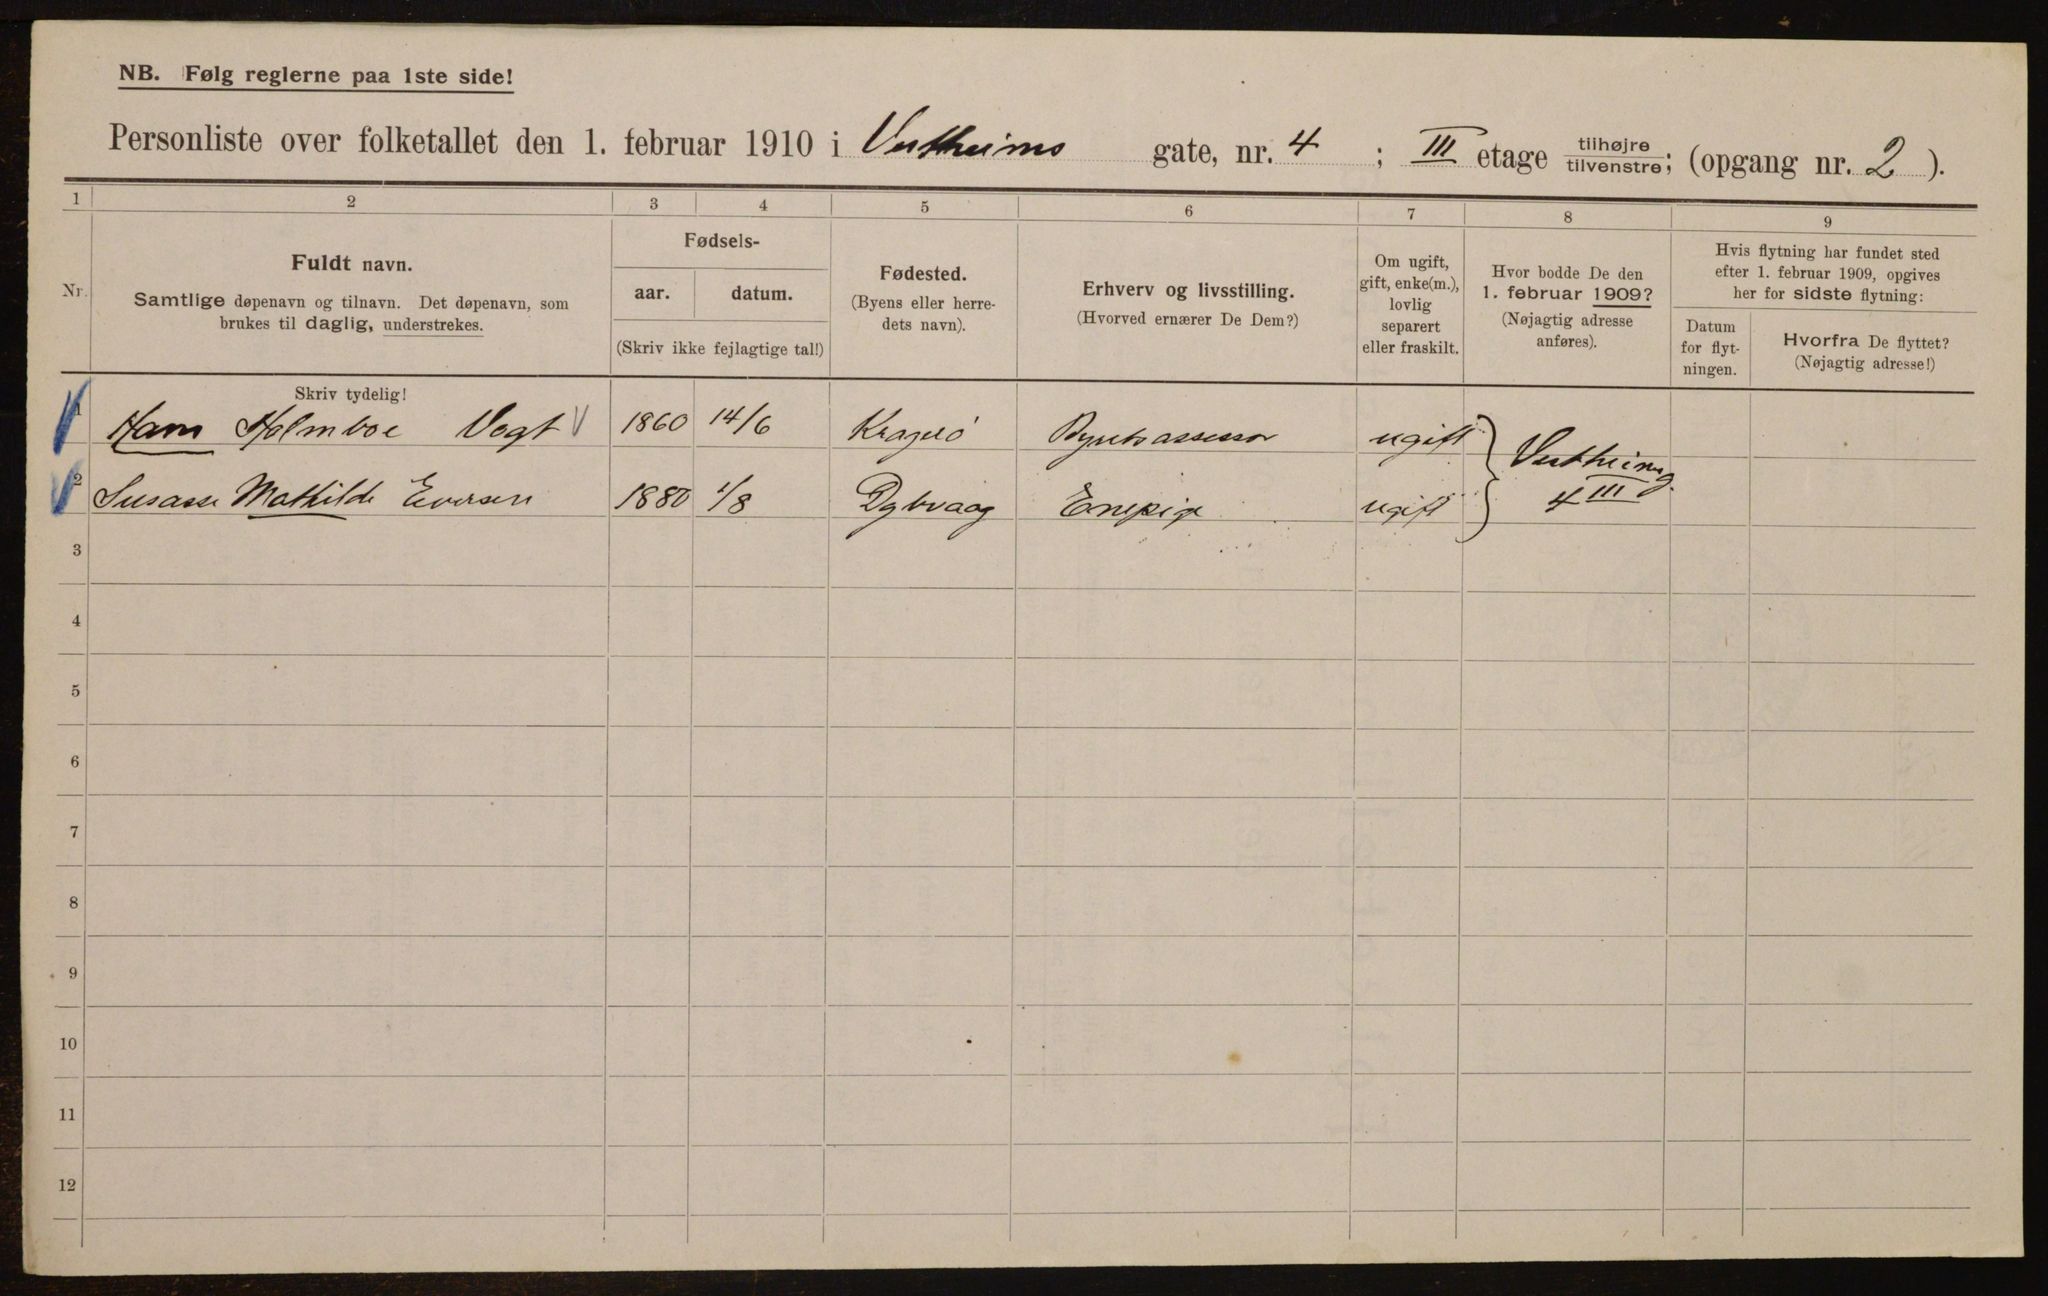 NB. Følg reglerne paa 1ste side!
Personliste over folketallet den 1. februar 1910 i Vestheims gate, nr. 4 ; III etage tilhøjre tilvenstre; (opgang nr. 2 ).
1 2 3 4 5 6 7 8 9
Nr.
Fuldt navn.
Samtlige døpenavn og tilnavn. Det døpenavn, som
brukes til daglig, understrekes.
Skriv tydelig!
Fødsels-
aar. datum.
(Skriv ikke fejlagtige tal!)
Fødested.
(Byens eller herre-
dets navn).
Erhverv og livsstilling.
(Hvorved ernærer De Dem?)
Om ugift,
gift, enke(m.),
lovlig
separert
eller fraskilt.
Hvor bodde De den
1. februar 1909?
(Nøjagtig adresse
anføres).
Hvis flytning har fundet sted
efter 1. februar 1909, opgives
her for sidste flytning:
Datum
for flyt-
ningen.
Hvorfra De flyttet?
(Nøjagtig adresse!)
1 Hans Holmboe Vogt 1860 14/6 Kragerö Byretsassessor ugift Vestheimsg.
2 Mathilde Evensen 1880 1/8 Dybvaag Enepige ugift 4 III
3
4
5
6
7
8
9
10
11
12